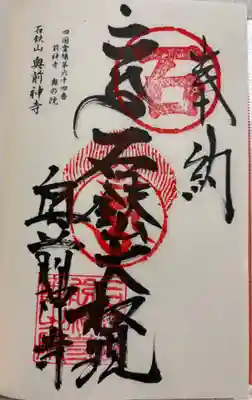 奉納
石鈇大権現
奥前神寺
四国霊場第六十四番
前神寺 奥の院
石鈇山 奥前神寺
石